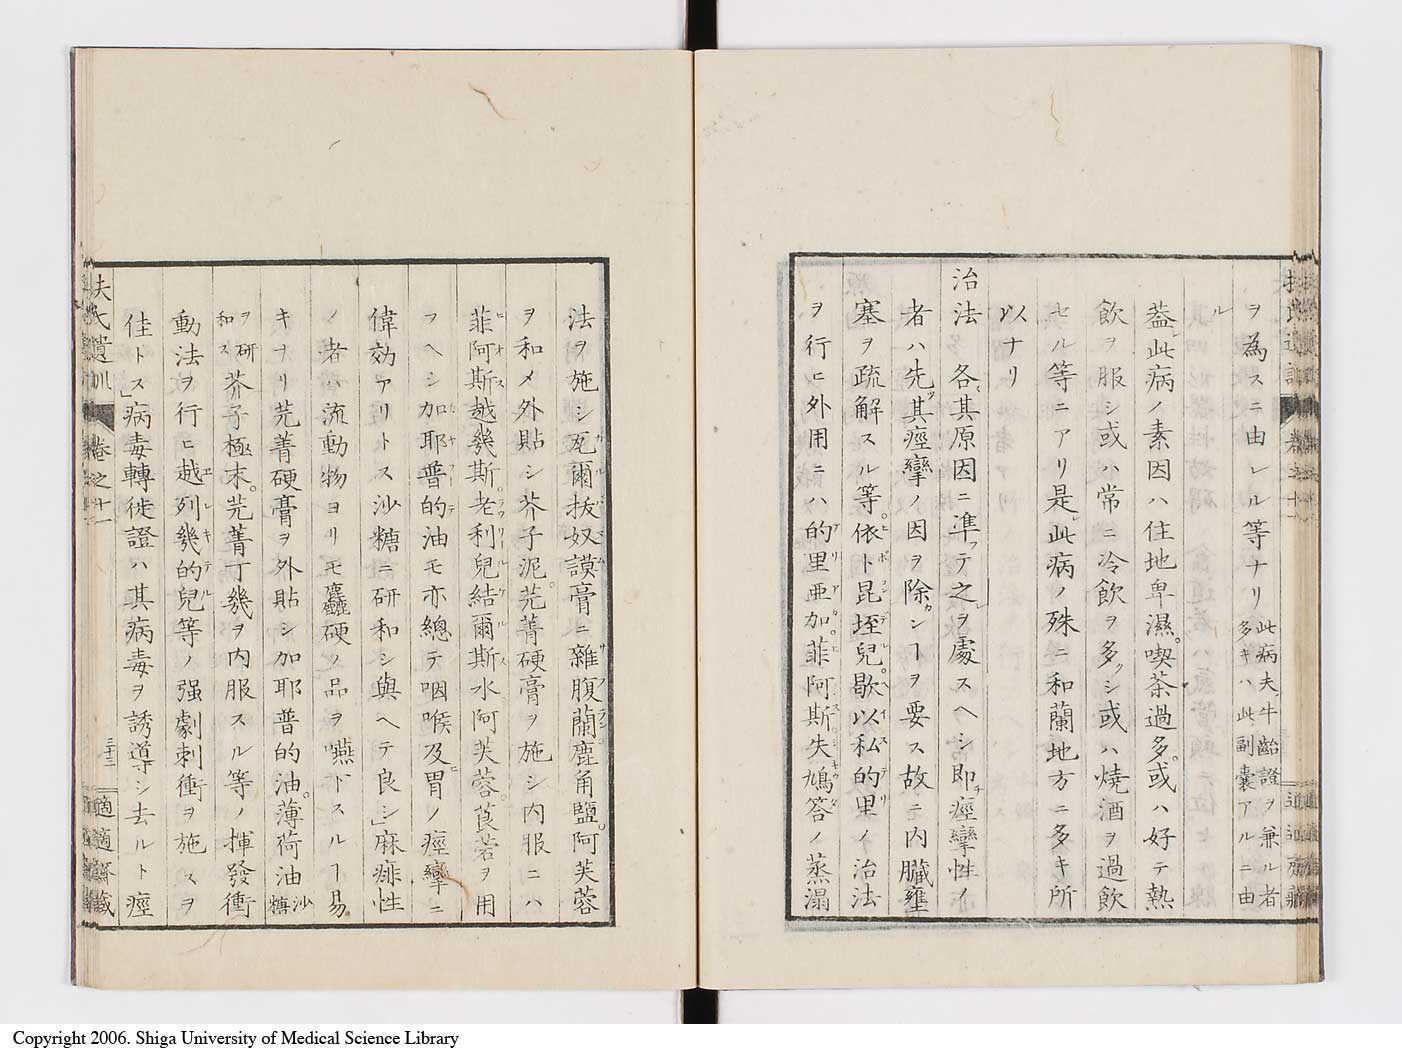 ヲ為スニ由レル等ナリ此病夫ノ牛齝證ヲ兼ル者多キハ此副嚢アルニ由
ル
蓋此病ノ素因ハ住地卑濕。喫茶過多。或ハ好テ熱
飲ヲ服シ或ハ常ニ冷飲ヲ多クシ或ハ焼酒ヲ過飲
セル等ニアリ是レ此病ノ殊ニ和蘭地方ニ多キ所
以ナリ
治法 各〻其原因ニ準フテ之レヲ處スヘシ即チ痙攣性ノ
者ハ先ツ其痙攣ノ因ヲ除カンヿヲ要ス故ニ内臓壅
塞ヲ疏解スル等。依ト昆垤兒。歇以私的里ノ治法
ヲ行ヒ外用ニハ的里亜加。菲阿斯失鳩答ノ蒸溻
法ヲ施シ爾抜奴謨膏ニ雜腹蘭鹿角鹽。阿芙蓉
ヲ和メ外貼シ芥子泥。芫菁硬膏ヲ施シ内服ニハ
菲阿斯越幾斯。老利兒結爾斯水阿芙蓉。莨菪ヲ用
フヘシ加耶普的油モ亦總テ咽喉及ヒ胃ノ痙攣ニ
偉効アリトス沙糖ニ研和シ與ヘテ良シ」麻痺性
ノ者ハ流動物ヨリモ麤硬ノ品ヲ嚥下スルヿ易
キヲリ芫菁硬膏ヲ外貼シ加耶普的油。薄荷油沙糖
ヲ研和ス芥子極末。芫菁丁幾ヲ内服スル等ノ揮發衝
動法ヲ行ヒ越列幾的兒等ノ强劇刺衝ヲ施スヲ
佳トス」病毒轉徙證ハ其病毒ヲ誘導シ去ルト痙
扶氏遺訓
卷之十一
三十三
適適齋藏
Copyright 2006. Shiga University of Medical Science Library